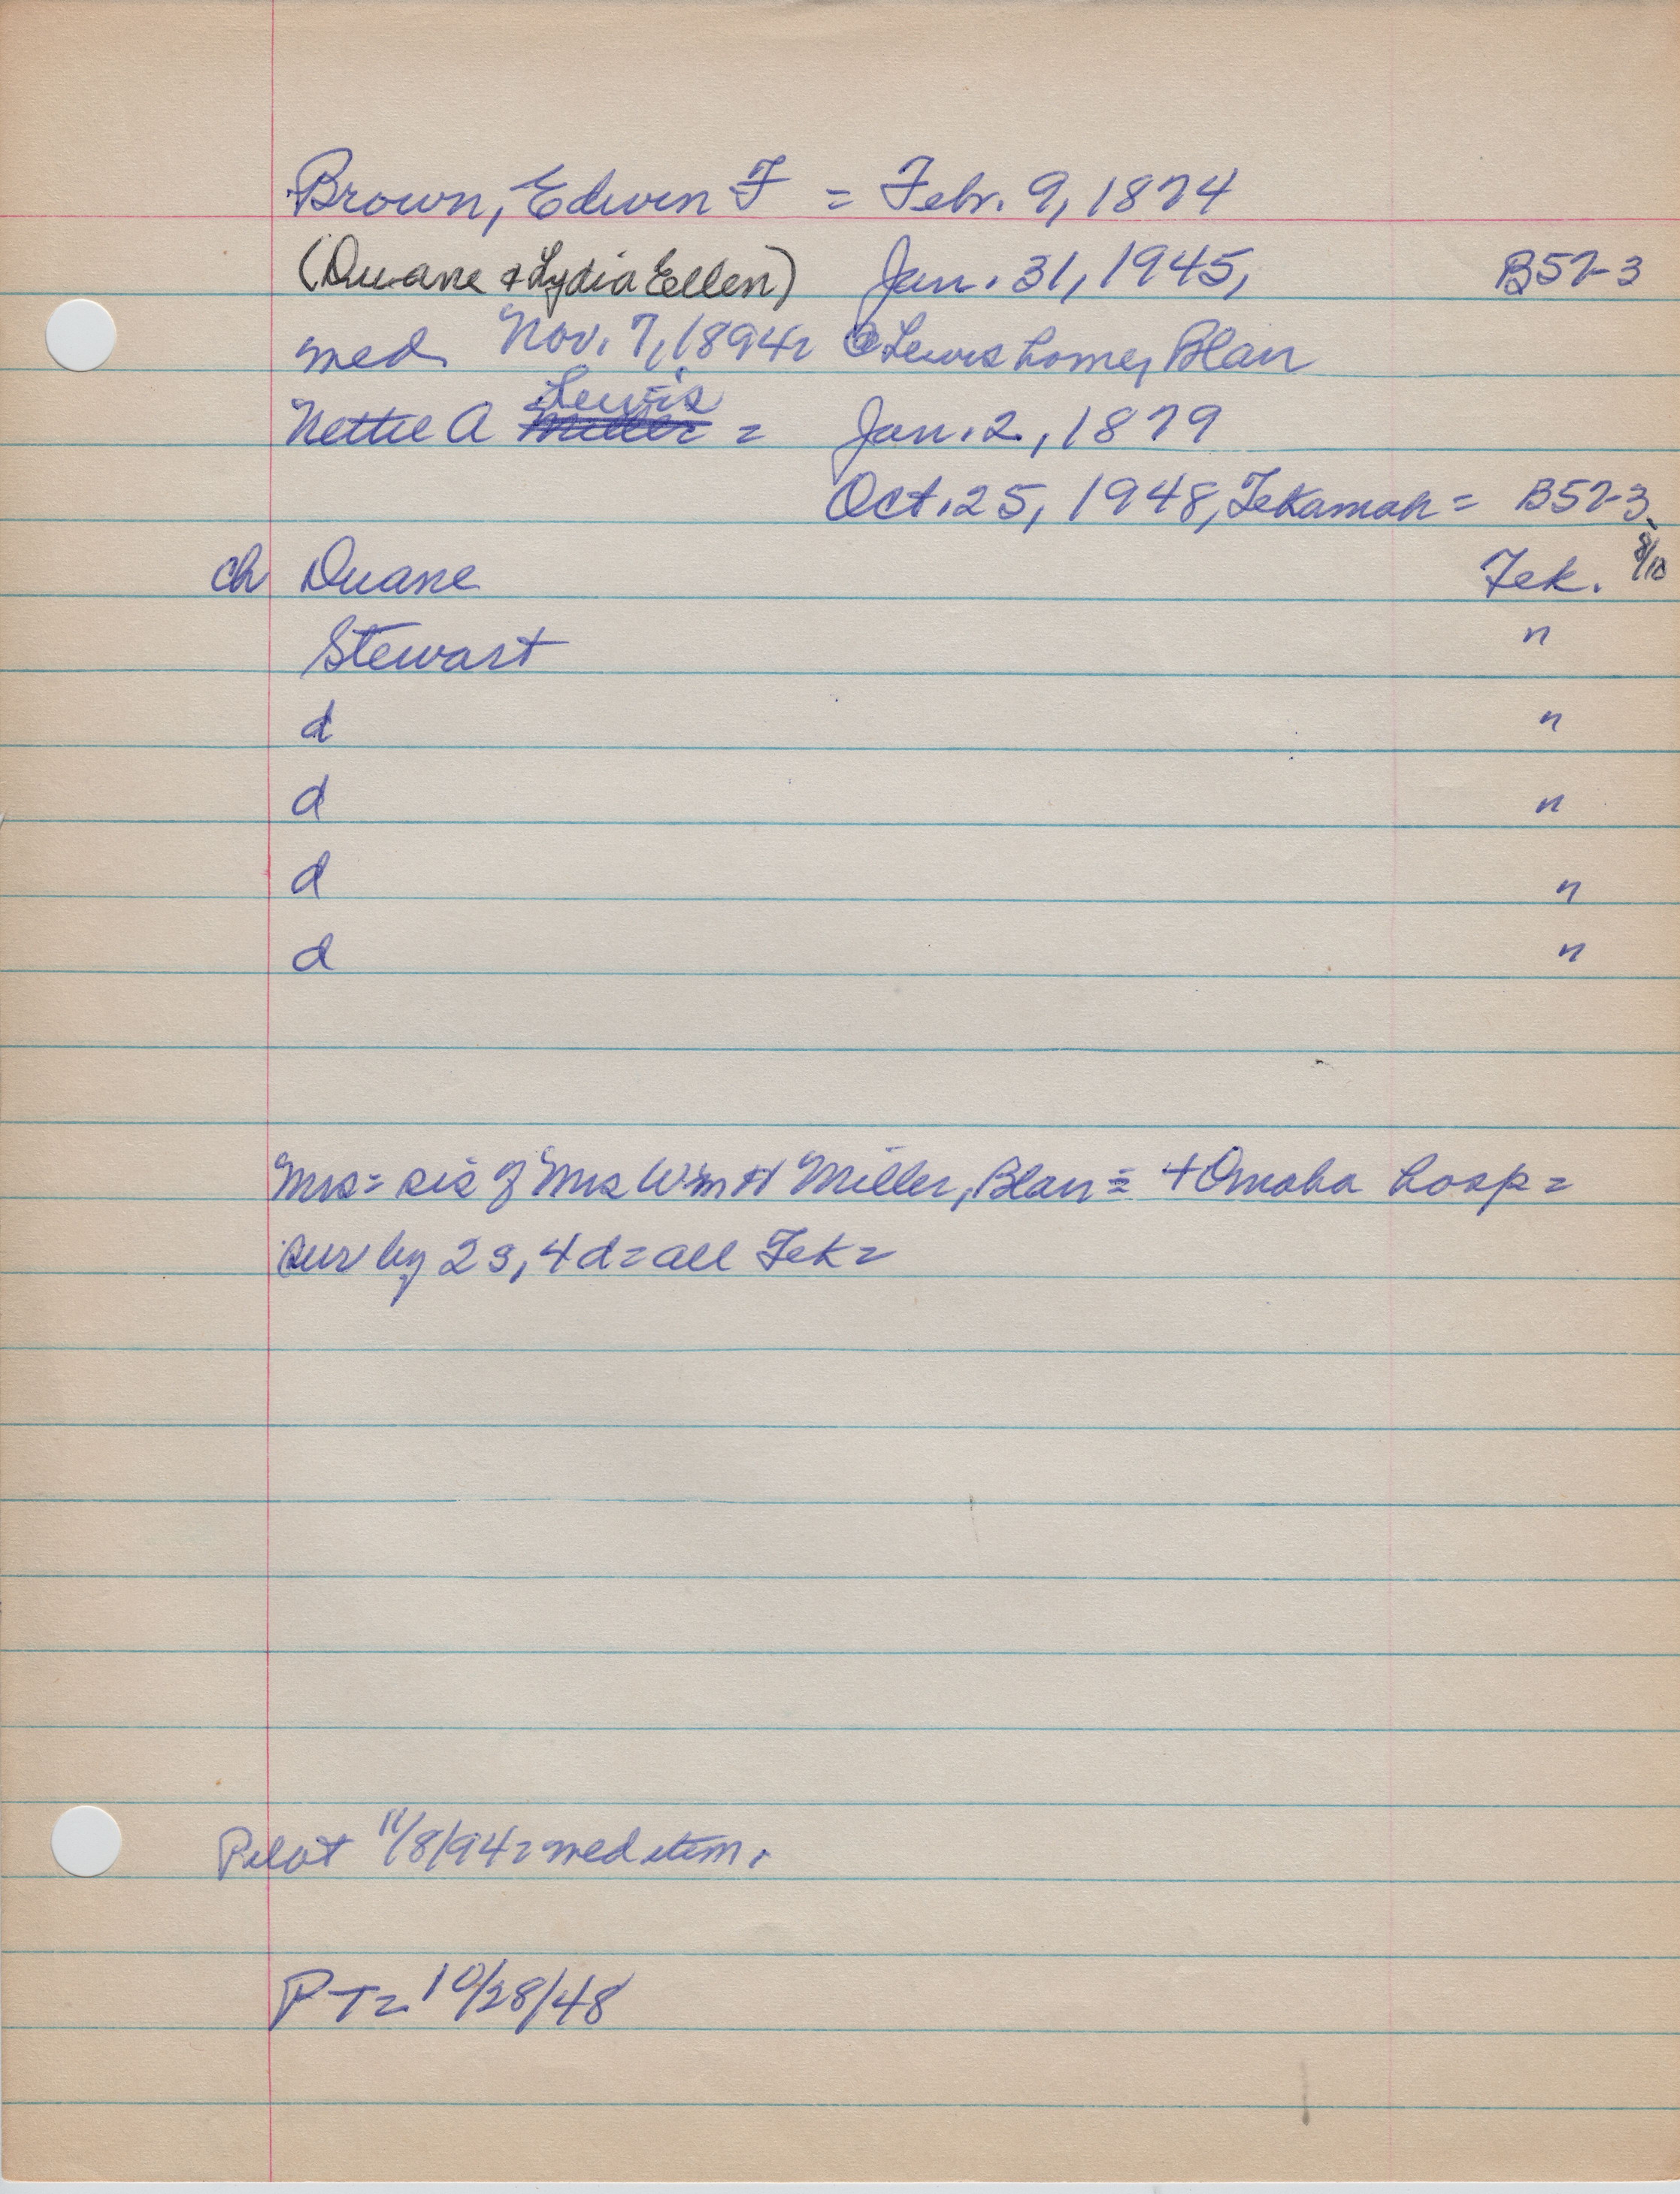 Brown, Edwin F = Febr. 9, 1874
(Duane & Lydia Ellen) Jan. 31, 1945, B57-3
med Nov. 7, 1894= @ Lewis home, Blair
Lewis
Nettie A Miller = Jan. 2, 1879
Oct. 25, 1948, Tekamah = B57-3
ch Duane Tek. 8/10
Stewart "
d "
d "
d "
d "
Mrs= sis of Mrs Wm H Miller, Blair = + Omaha hosp =
sur by 2 s, 4 d = all Tek =
Pilot 11/8/94= med item.
PT= 10/28/48